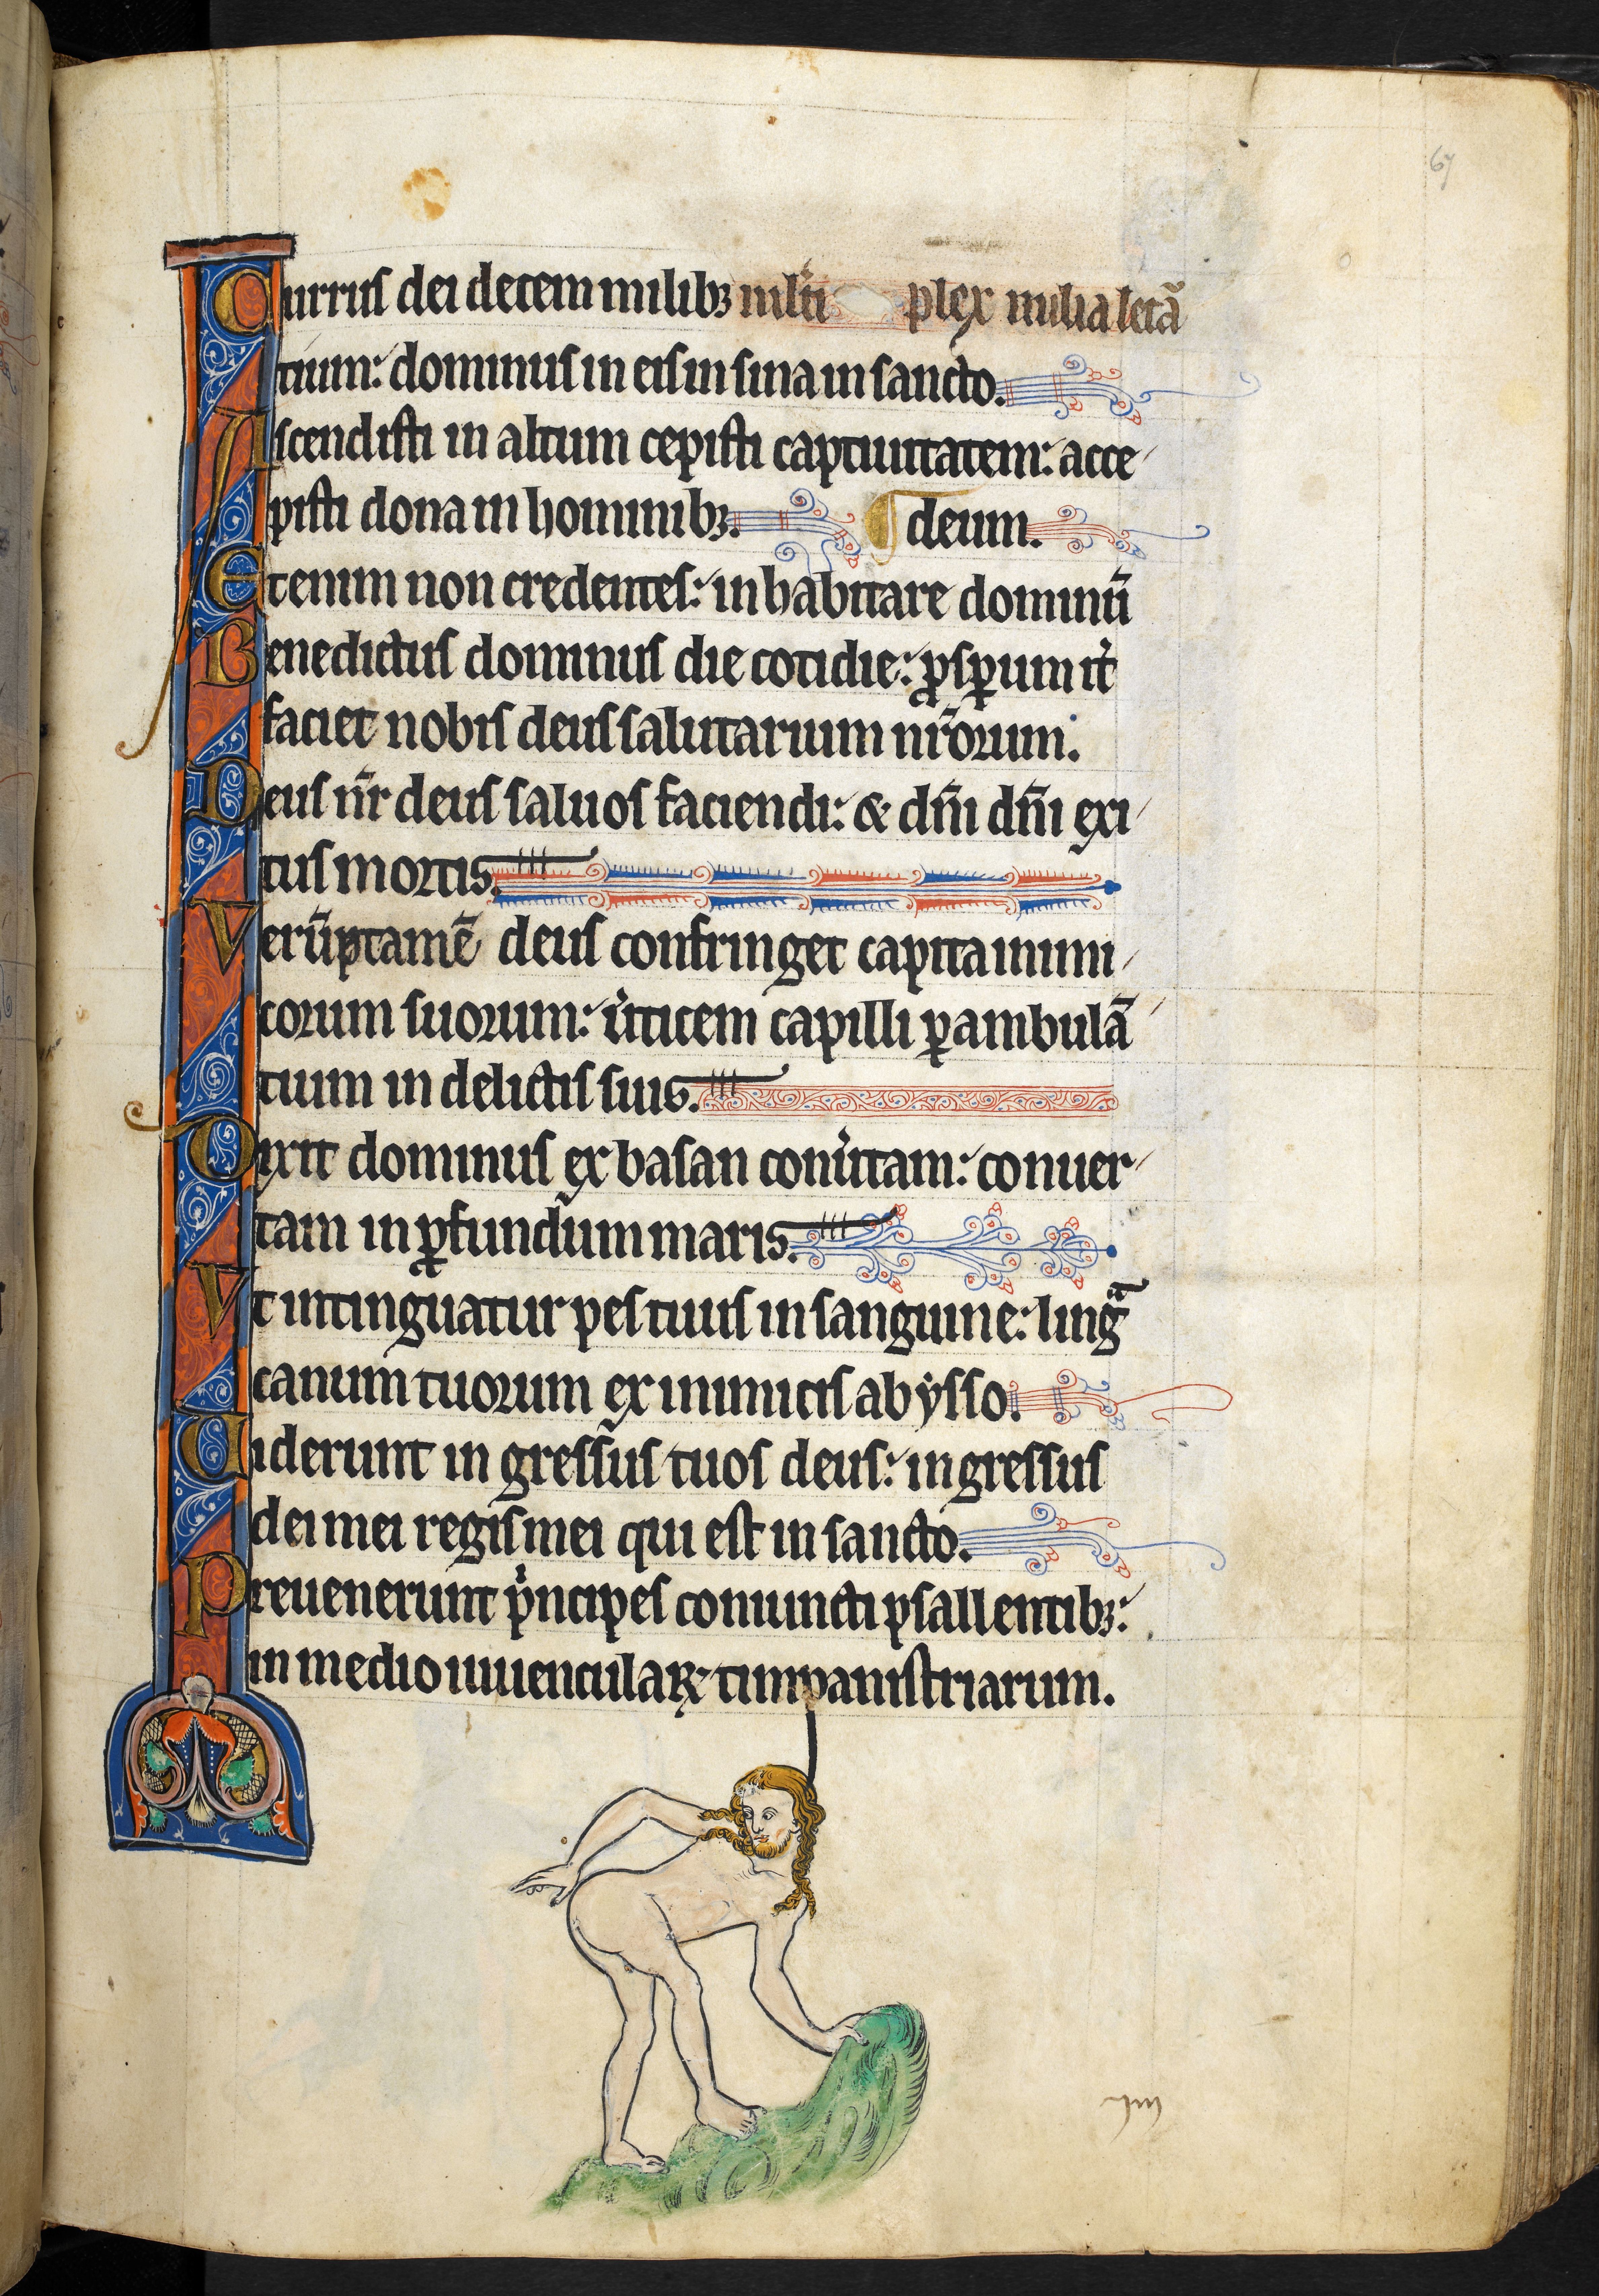 67
Currus dei decem milibꝫ mlti plex milia letã
tium: dominus in eis in sina in sancto.
Ascendisti in altum cepisti captiuitatem: acce
pisti dona in hominibꝫ. ¶ deum.
Etenim non credentes: inhabitare dominũ
Benedictus dominus die cotidie: ꝓsꝑum it̾
faciet nobis deus salutarium nr̃orum.
Deus nr̃ deus saluos faciendi: & dñi dñi exi
tus mortis.
Verũptamẽ deus confringet capita inimi
corum suorum: u̾ticem capilli ꝑambulã
tium in delictis suis.
Dixit dominus ex basan conu̾tam: conuer
tam in ꝓfundum maris.
Vt intinguatur pes tuus in sanguine: lingᷓ
canum tuorum ex inimicis ab ẏsso.
Uiderunt in gressus tuos deus: ingressus
dei mei regis mei qui est in sancto.
Preuenerunt pͥncipes coniuncti psallentibꝫ:
in medio iuuencularꝝ timpanistriarum.